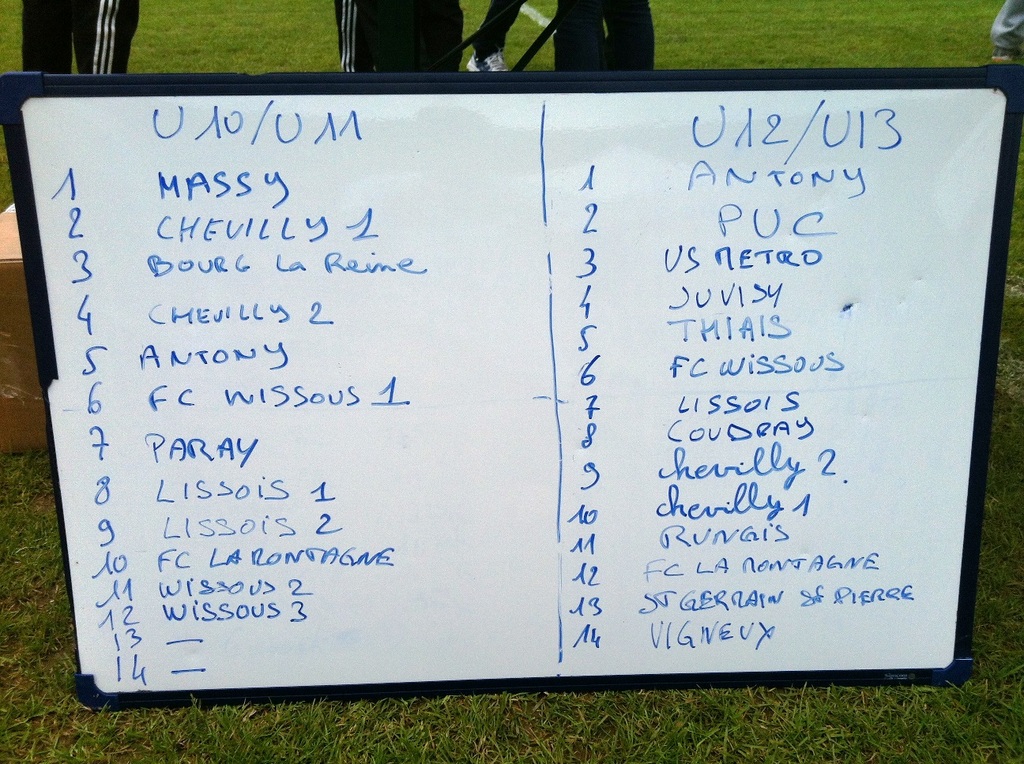 U10/U11
1 MASSY
2 CHEVILLY 1
3 BOURG La Reine
4 CHEVILLY 2
5 ANTONY
6 FC WISSOUS 1
7 PARAY
8 LISSOIS 1
9 LISSOIS 2
10 FC LA MONTAGNE
11 WISSOUS 2
12 WISSOUS 3
13 —
14 —
U12/U13
1 ANTONY
2 PUC
3 US METRO
4 JUVISY
5 THIAIS
6 FC WISSOUS
7 LISSOIS
8 COUDRAY
9 chevilly 2.
10 chevilly 1
11 RUNGIS
12 FC LA MONTAGNE
13 ST GERMAIN St PIERRE
14 VIGNEUX